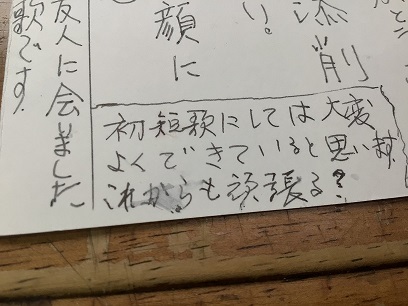 かと
添削
い。
顔に
友人に会いました
歌です。
初短歌にしては大変
よくできていると思います
これからも頑張る?